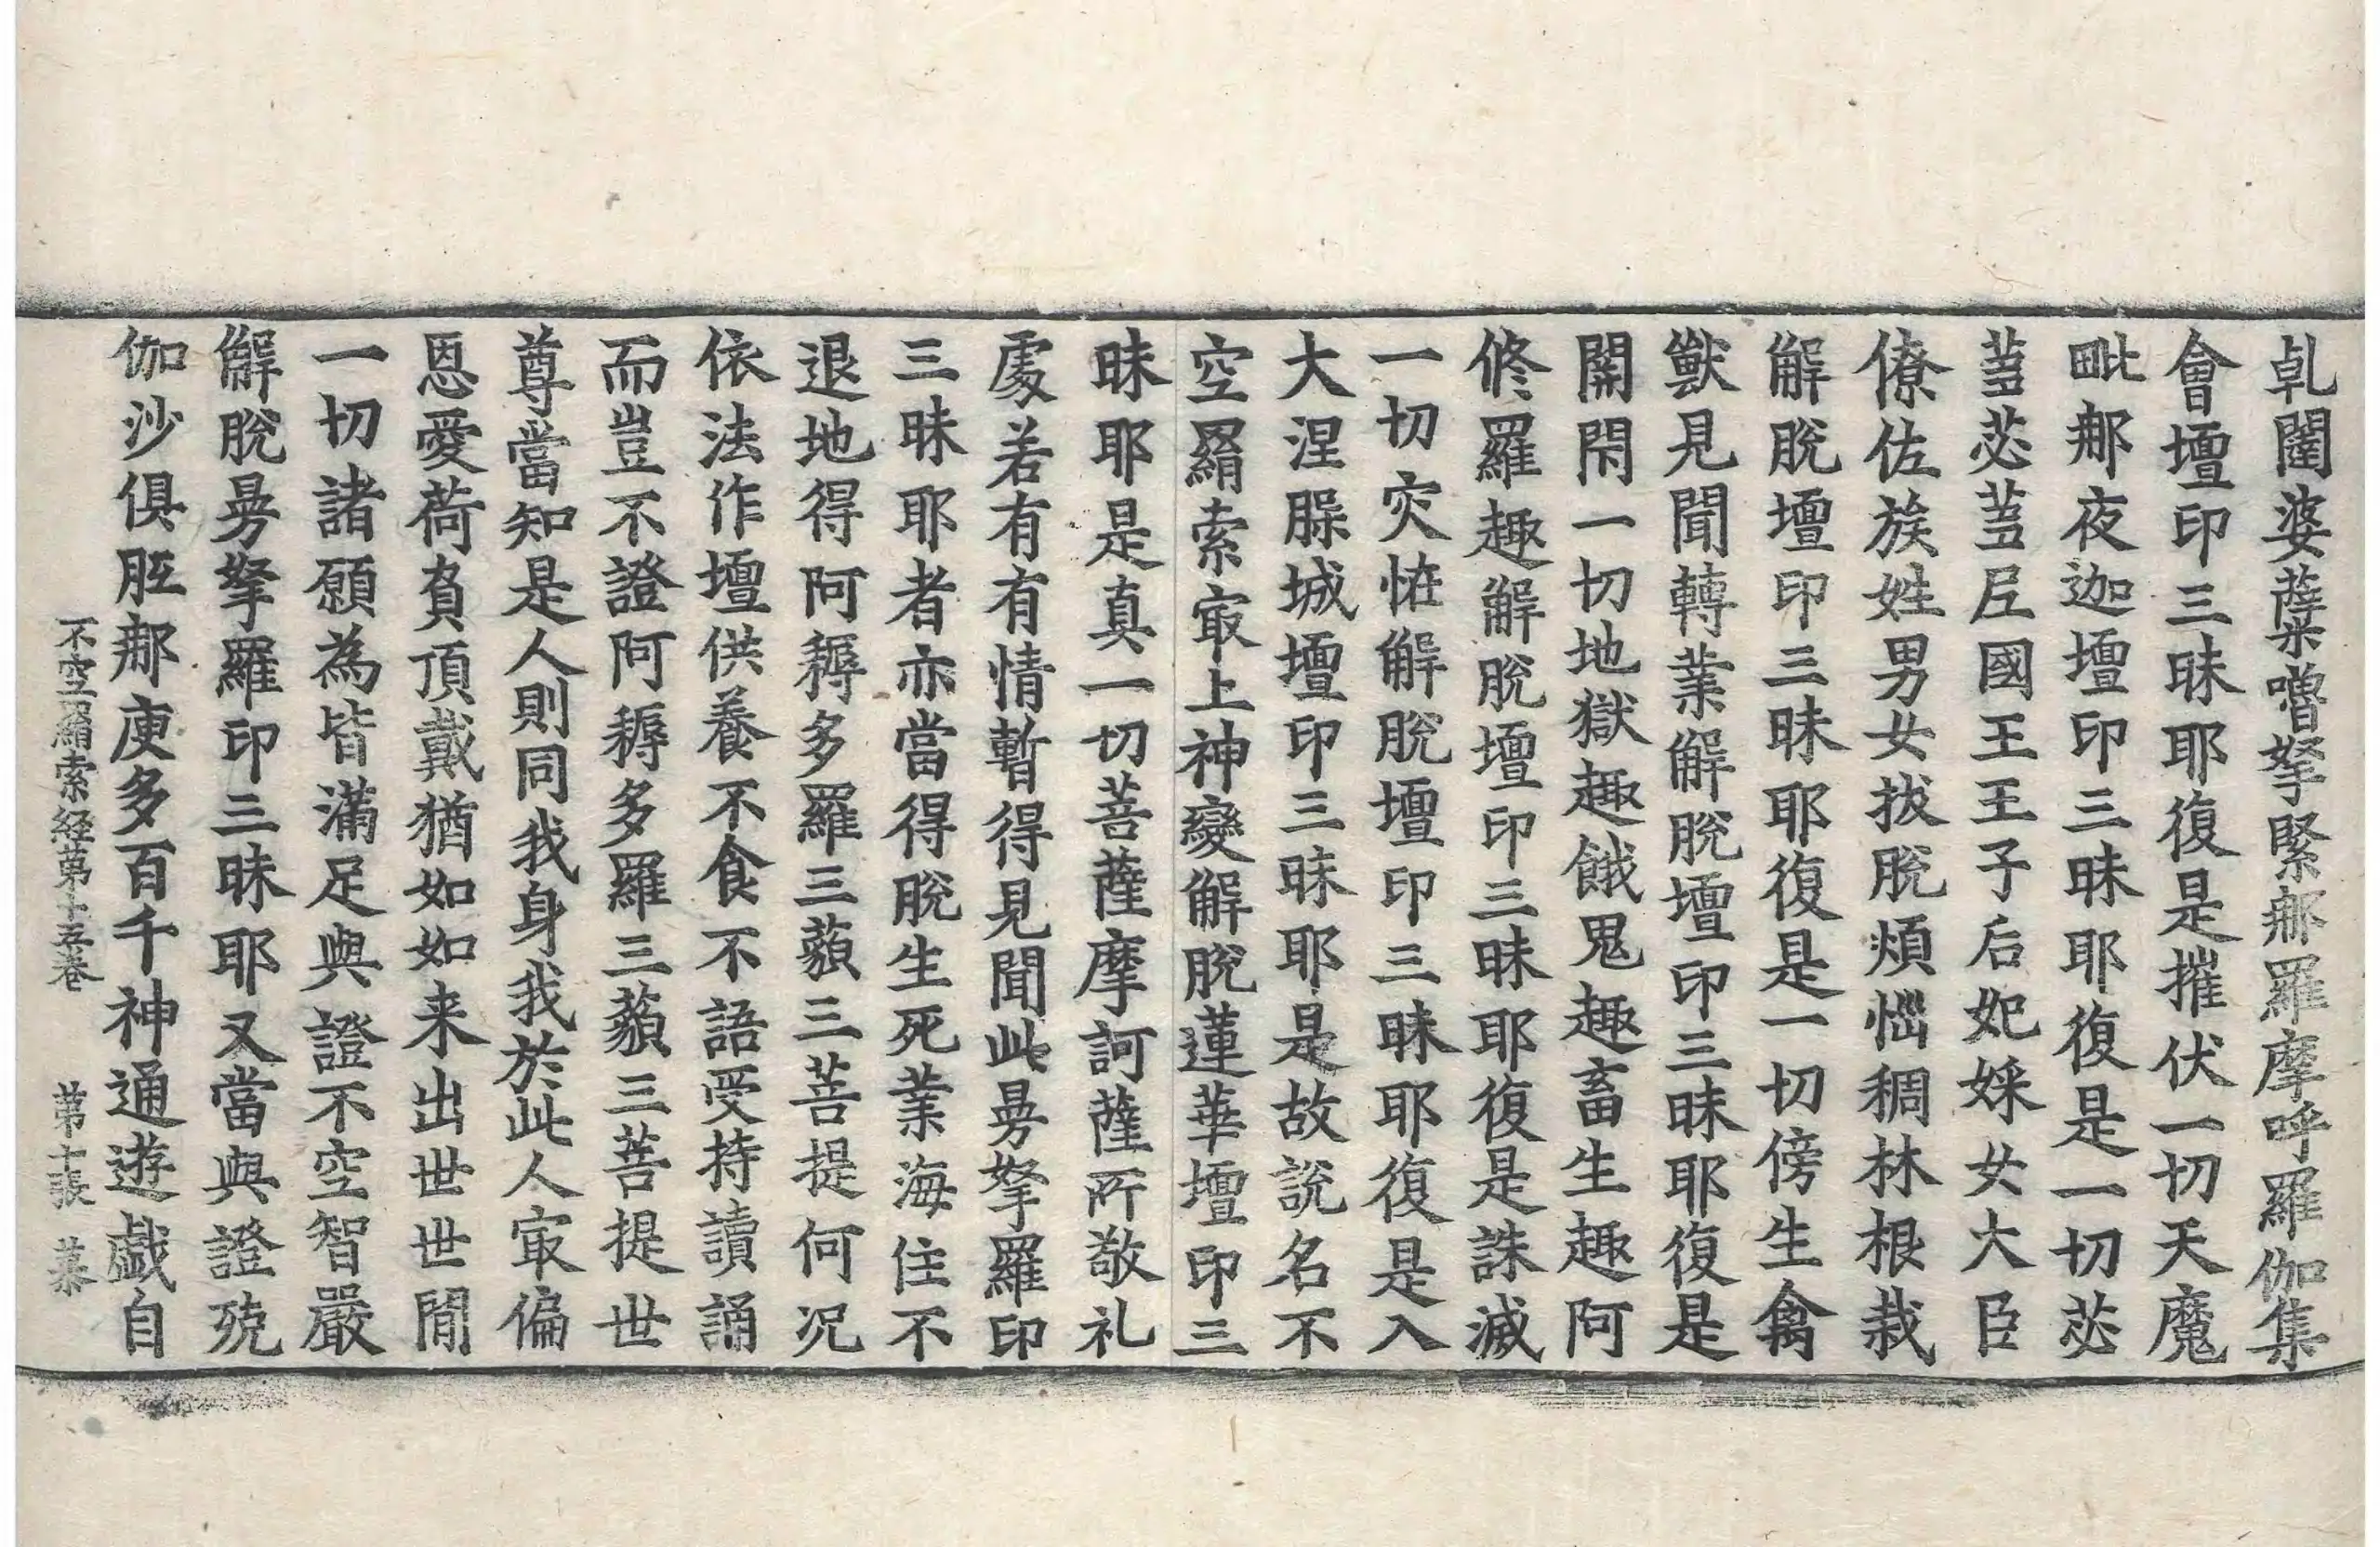 乹闥婆孽嚕拏緊那羅摩呼羅伽集
會壇印三昧耶復是摧伏一切天魔
毗那夜迦壇印三昧耶復是一切苾
蒭苾蒭尼國王王子后妃婇女大臣
僚佐族姓男女拔脫煩惱稠林根栽
解脫壇印三昧耶復是一切傍生禽
獸見聞轉業解脫壇印三昧耶復是
開閇一切地獄趣餓鬼趣畜生趣阿
修羅趣解脫壇印三昧耶復是誅滅
一切灾恠解脫壇印三昧耶復是入
大涅槃城壇印三昧耶是故說名不
空羂索㝡上神變解脫蓮華壇印三
昧耶是真一切菩薩摩訶薩所敬礼
處若有有情暫得見聞此㬅拏羅印
三昧耶者亦當得脫生死業海住不
退地得阿耨多羅三藐三菩提何況
依法作壇供養不食不語受持讀誦
而豈不證阿耨多羅三藐三菩提世
尊當知是人則同我身我於此人㝡偏
恩愛荷負頂戴猶如如来出世世間
一切諸願為皆滿足與證不空智嚴
解脫㬅拏羅印三昧耶又當與證殑
伽沙俱胝那庾多百千神通遊戲自
不空羂索経第十五卷 第十張 慕